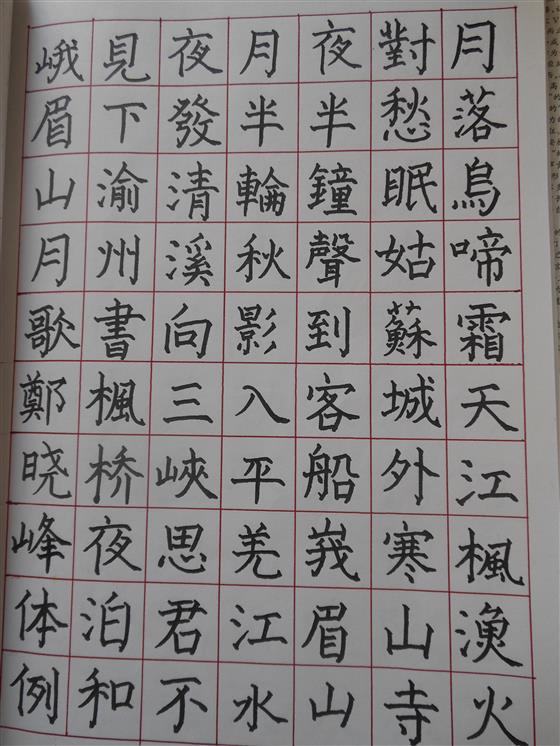 月落烏啼霜天江楓漁火
對愁眠姑蘇城外寒山寺
夜半鐘聲到客船峩眉山
月半輪秋影八平羌江水
夜發清溪向三峽思君不
見下渝州書楓桥夜泊和
峨眉山月歌鄭晓峰体例